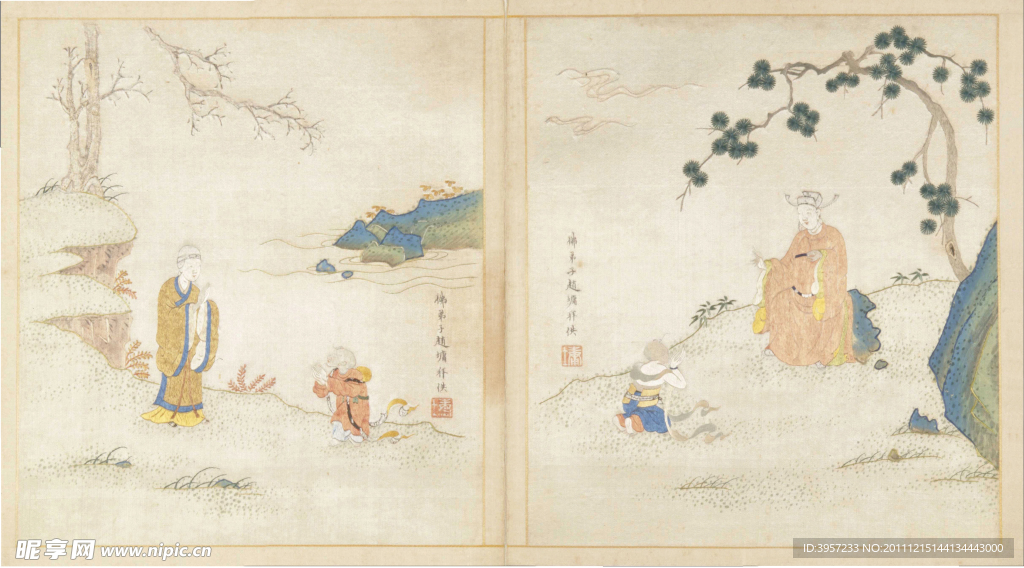 佛弟子趙墉拜供
佛弟子趙墉拜供
昵享网 www.nipic.cn
ID:3957233 NO:20111215144134443000